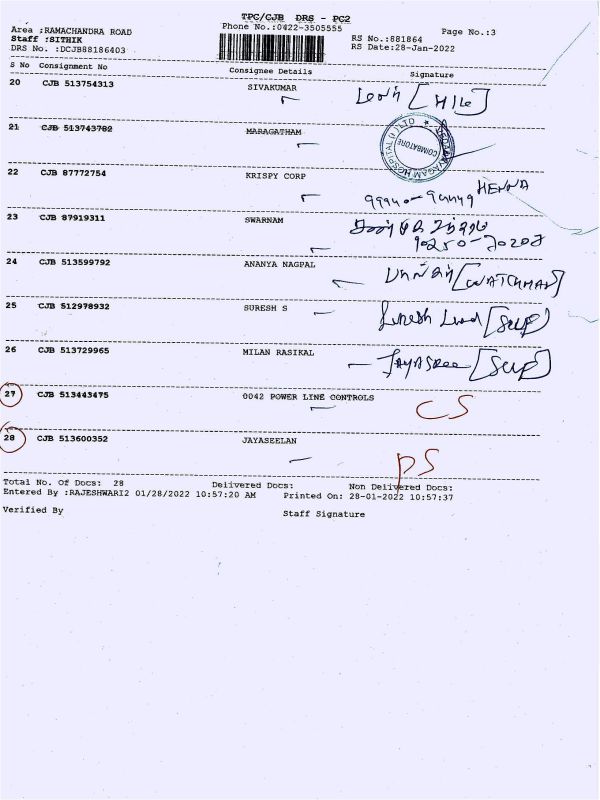 TPC/CJB DRS - PC2
Area ;RAMACHANDRA ROAD Phone No.:0422-3505555 Page No.:3
Staff :SITHIK RS No.:881864
DRS No. :DCJB88186403 RS Date:28-Jan-2022
S No Consignment No Consignee Details Signature
20 CJB 513754313 SIVAKUMAR
21 CJB 513743782 MARAGATHAM
COIMBATORE
22 CJB 87772754 KRISPY CORP HENNA
23 CJB 87919311 SWARNAM
24 CJB 513599792 ANANYA NAGPAL [WATCHMAN]
25 CJB 512978932 SURESH S Suresh [Self]
26 CJB 513729965 MILAN RASIKAL Jayasree [Self]
27 CJB 513443475 0042 POWER LINE CONTROLS CS
28 CJB 513600352 JAYASEELAN PS
Total No. Of Docs: 28 Delivered Docs: Non Delivered Docs:
Entered By :RAJESHWARI2 01/28/2022 10:57:20 AM Printed On: 28-01-2022 10:57:37
Verified By Staff Signature